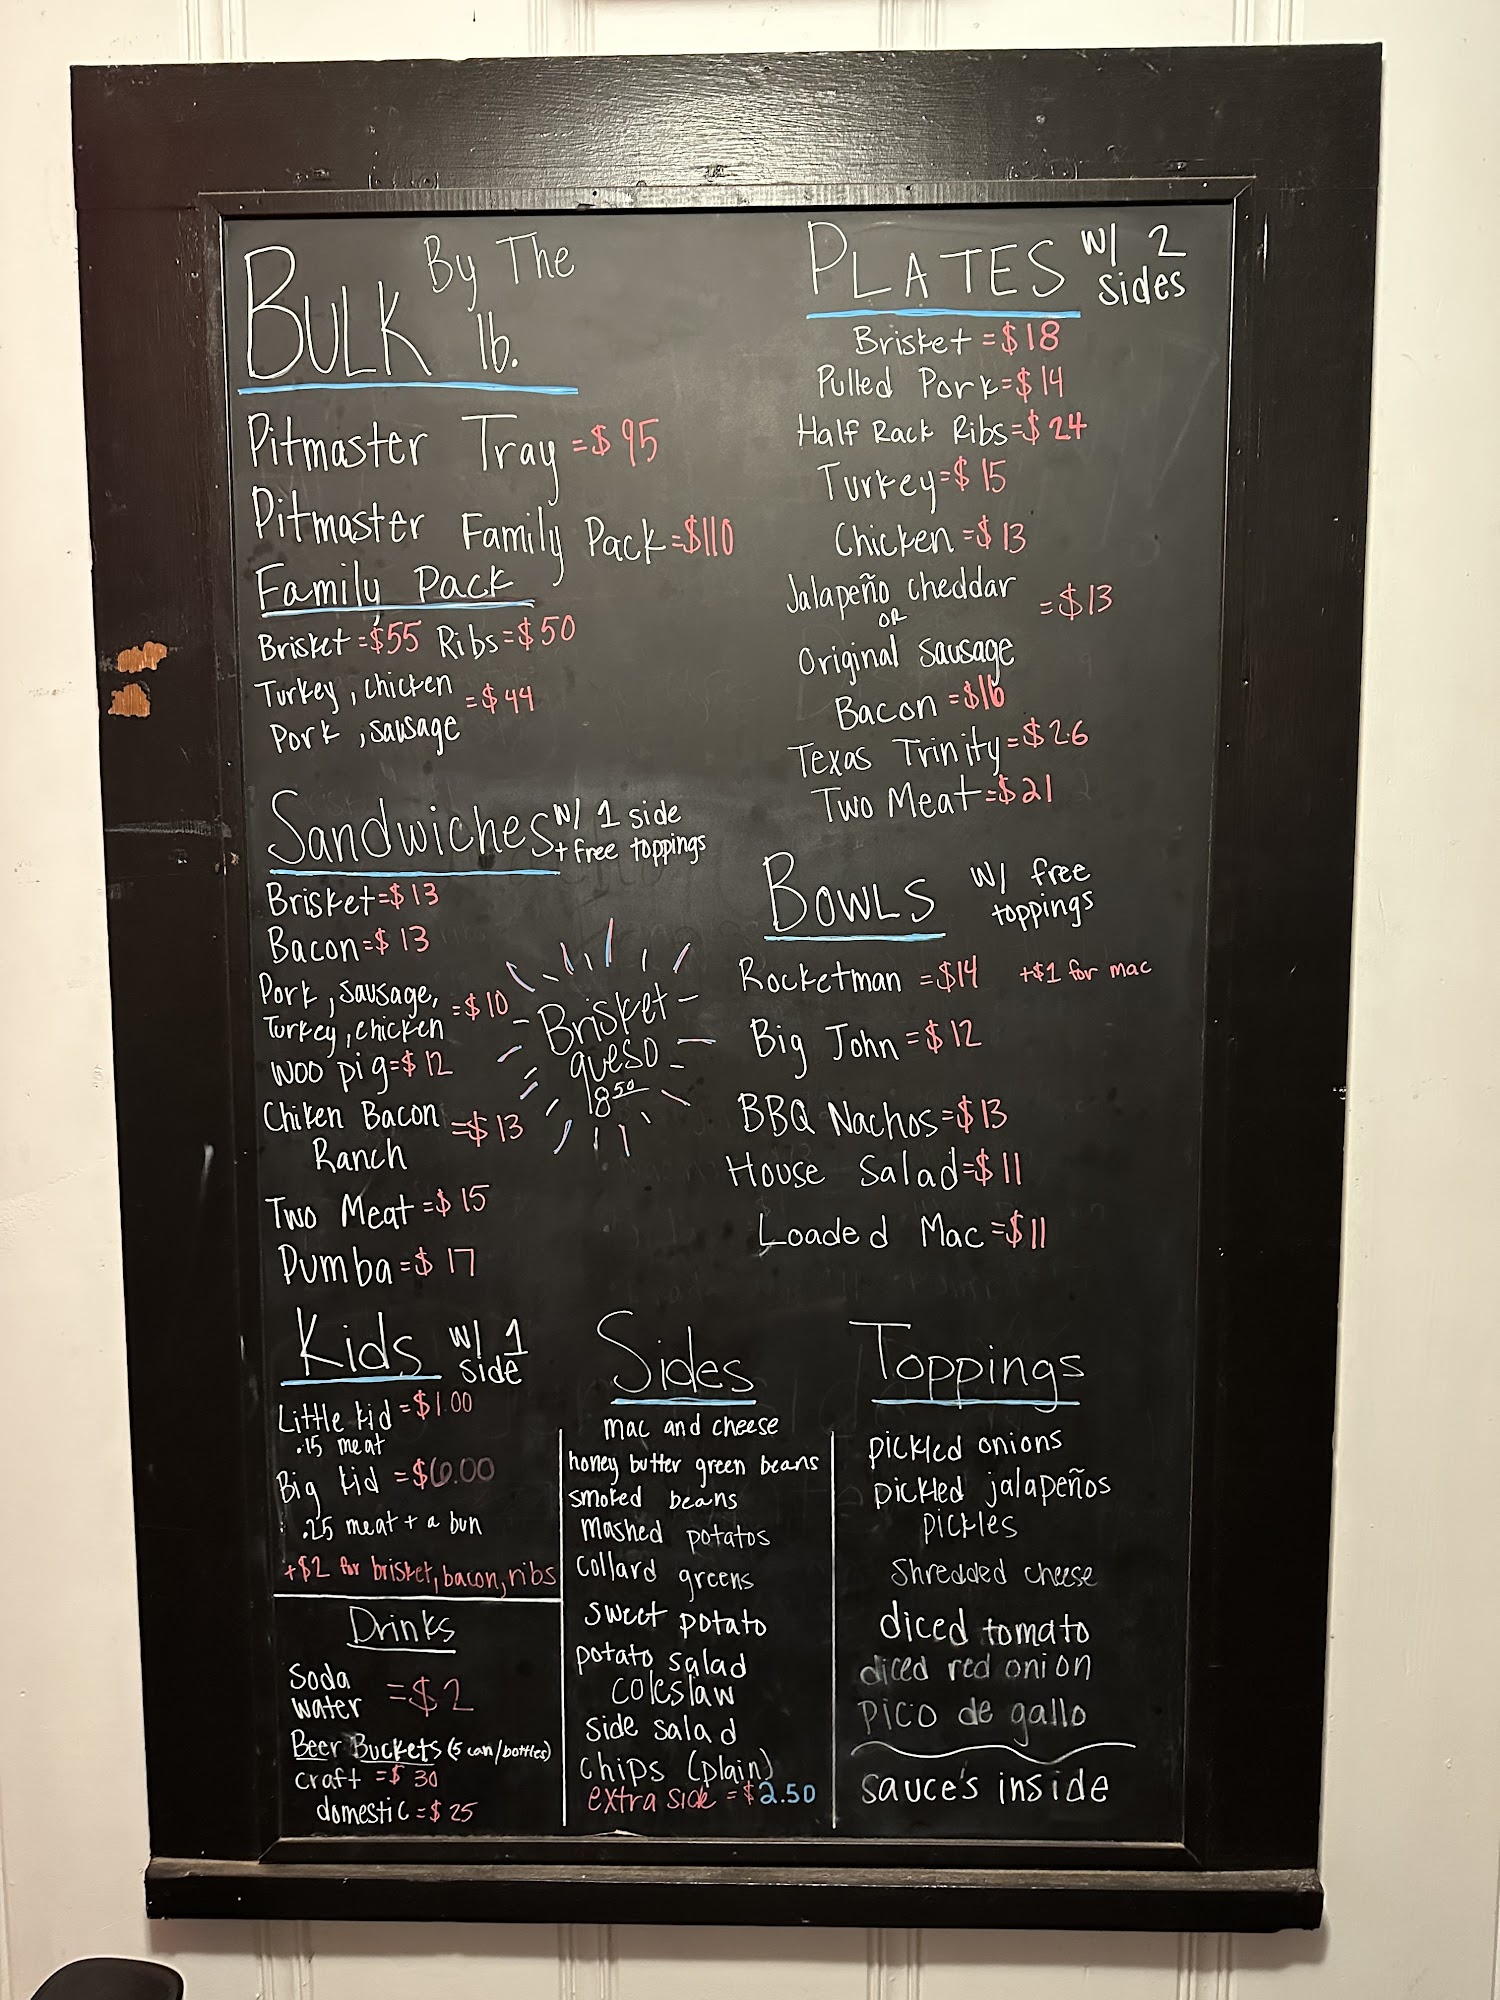 BULK By The lb.
Pitmaster Tray =$95
Pitmaster Family Pack =$110
Family Pack
Brisket =$55 Ribs =$50
Turkey, chicken
Pork, sausage =$44
Sandwiches w/ 1 side + free toppings
Brisket =$13
Bacon =$13
Pork, sausage,
Turkey, chicken =$10
woo pig =$12
Chiken Bacon
Ranch =$13
Two Meat =$15
Pumba =$17
Brisket
queso
18⁵⁰
PLATES w/ 2 sides
Brisket =$18
Pulled Pork =$14
Half Rack Ribs =$24
Turkey =$15
Chicken =$13
Jalapeño cheddar
OR
Original sausage =$13
Bacon =$16
Texas Trinity =$26
Two Meat =$21
BOWLS w/ free toppings
Rocketman =$14 +$1 for mac
Big John =$12
BBQ Nachos =$13
House Salad =$11
Loaded Mac =$11
Kids w/ 1 side
Little kid =$1.00
.15 meat
Big kid =$6.00
.25 meat + a bun
+$2 for brisket, bacon, ribs
Drinks
Soda
water =$2
Beer Buckets (5 can/bottles)
craft =$30
domestic =$25
Sides
mac and cheese
honey butter green beans
smoked beans
mashed potatos
collard greens
sweet potato
potato salad
coleslaw
side salad
chips (plain)
extra side =$2.50
Toppings
pickled onions
pickled jalapeños
pickles
shredded cheese
diced tomato
diced red onion
pico de gallo
sauce's inside